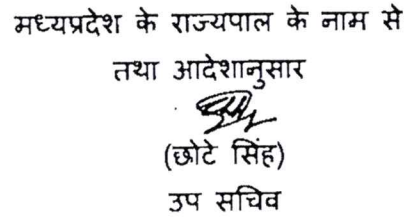 मध्यप्रदेश के राज्यपाल के नाम से
तथा आदेशानुसार
(छोटे सिंह)
उप सचिव